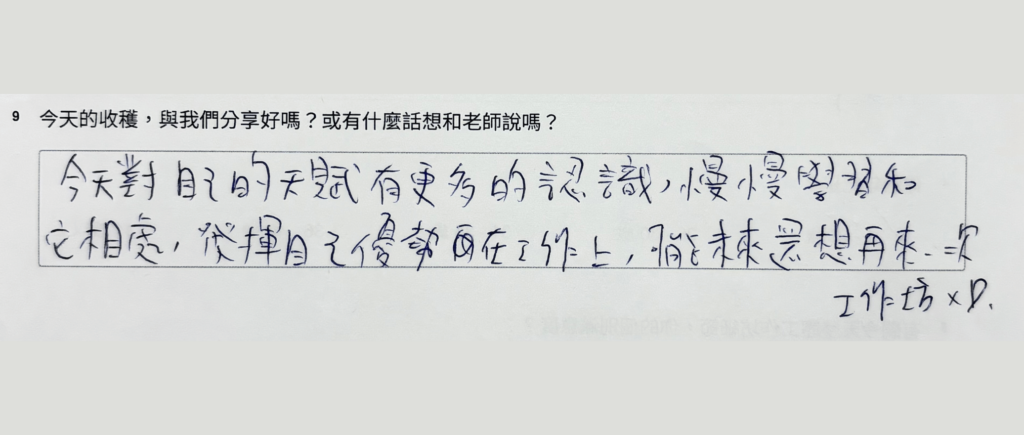 9 今天的收穫,與我們分享好嗎?或有什麼話想和老師說嗎?
今天對自己的天賦有更多的認識,慢慢學習和
它相處,發揮自己優勢 在工作上, 未來還想再來 二次
工作坊 XD.